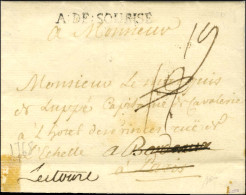 A·DE·SOUBISE
19
a Monsieur
Monsieur Le Marquis
de Luppé Capitaine de Cavalerie
a L'hotel des Princes rue de
L'Echelle a Bordeaux
a Paris
Lectoure
1768